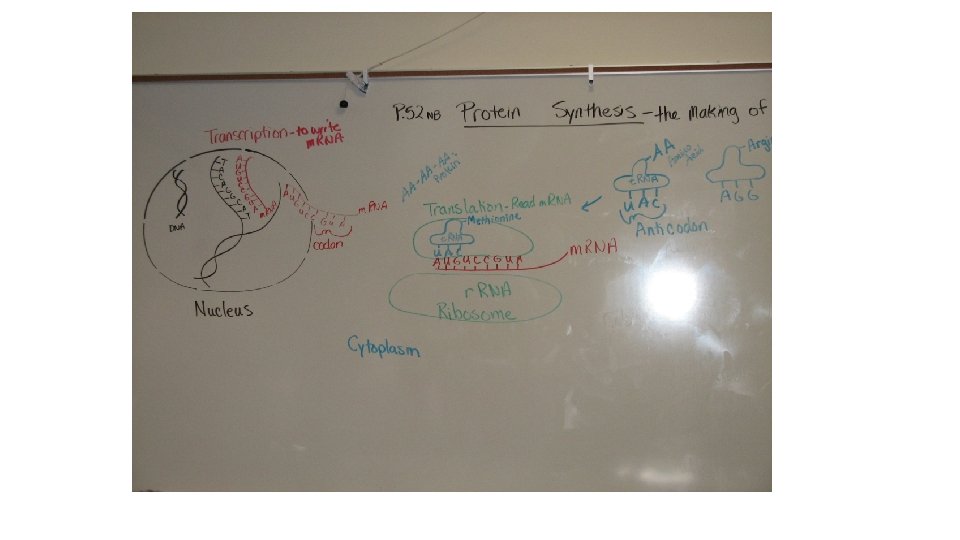 P.52 NB Protein Synthesis - the Making of
Transcription - to write
mRNA
DNA
mRNA
mRNA
codon
Nucleus
AA-AA-AA-
Protein
Translation - Read mRNA
Methionine
tRNA
UAC
AUGUCCGUA
mRNA
rRNA
Ribosome
Cytoplasm
AA
Amino
Acid
tRNA
UAC
Anticodon
AGG